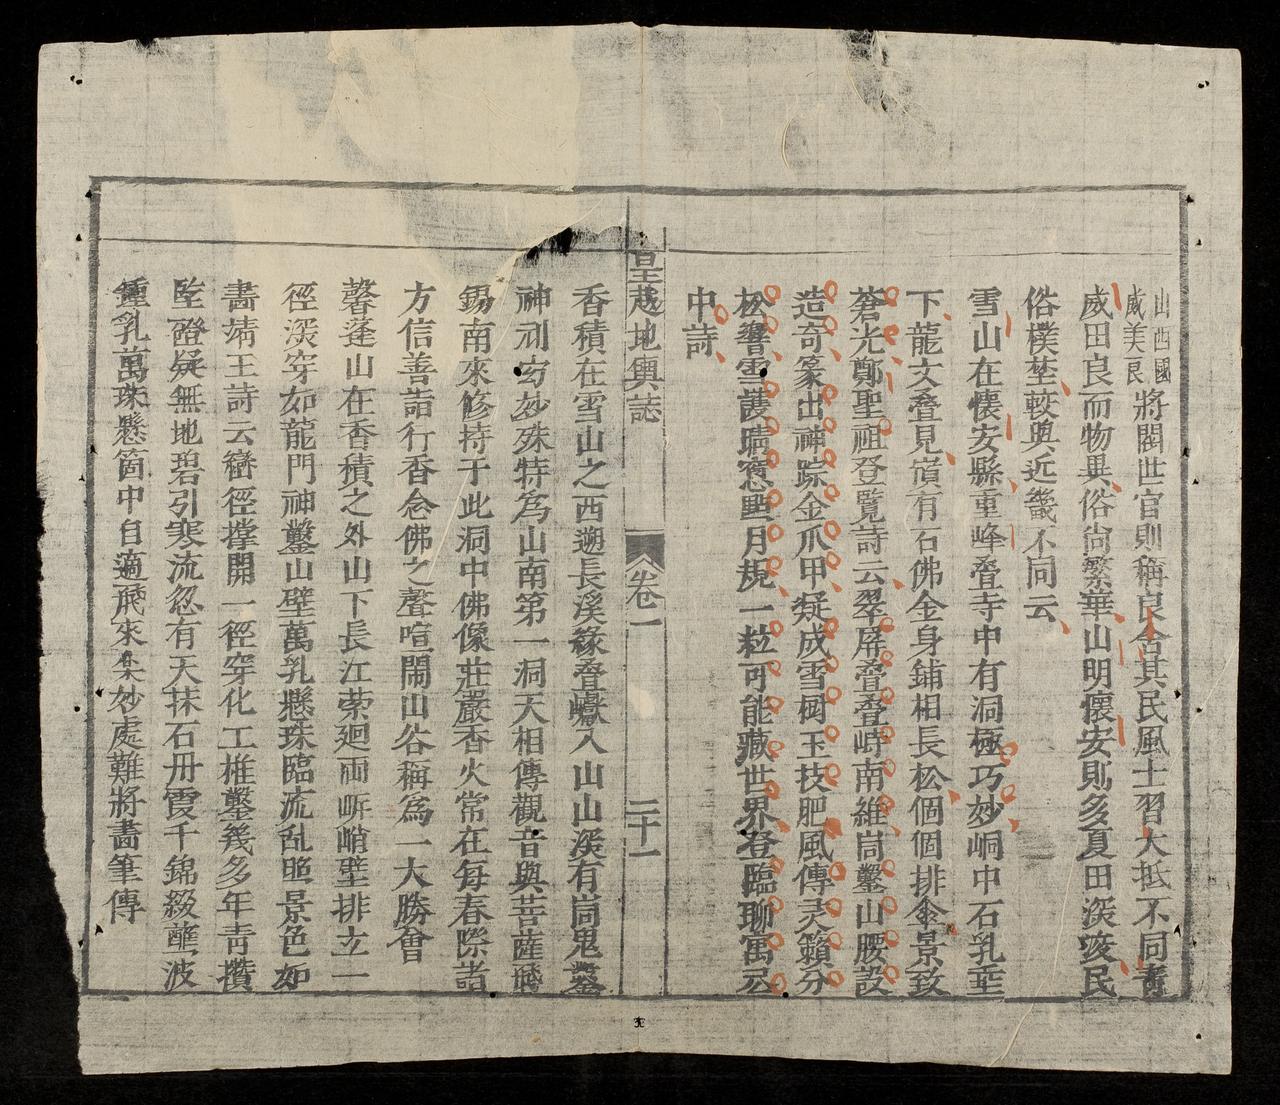 山西國
威美良
將閣世官則稱良舍其民風土習大抵不同青
威田良而物異俗尚繁華山明懷安則多夏田深疲民
俗樸埜較與近畿不同云
雪山在懷安縣重峰疊寺中有洞極巧妙峒中石乳垂
下龍文叠見嵿有石佛金身鋪相長松個個排金景致
蒼光鄭聖祖登覽詩云翠屏叠叠峙南維崗鑿山腰設
造奇篆出神踪金爪甲疑成雪樹玉技肥風傳灵籟分
松響雪護矓窓㸃月規一粒可能藏世界登臨聊寓
中詩
皇越地輿誌
卷一
二十一
香積在雪山之西遡長溪緣叠巘入山山深有崗鬼鑿
神刓玄妙殊特爲山南第一洞天相傳觀音與菩薩飛
錫南來修持于此洞中佛像莊嚴香火常在每春際諸
方信善詣行香念佛之聲喧鬧山谷稱爲一大勝會
馨蓬山在香積之外山下長江縈廻両岍峭壁排立一
徑深穿如龍門神鑿山壁萬乳懸珠臨流乱䀢景色如
畵靖王詩云巒徑撑開一徑穿化工椎鑿幾多年青攢
垐磴疑無地碧引寒流忽有天抹石丹霞千錦綴蘸波
鍾乳萬珠懸箇中自適飛來集妙處難將畵筆傳